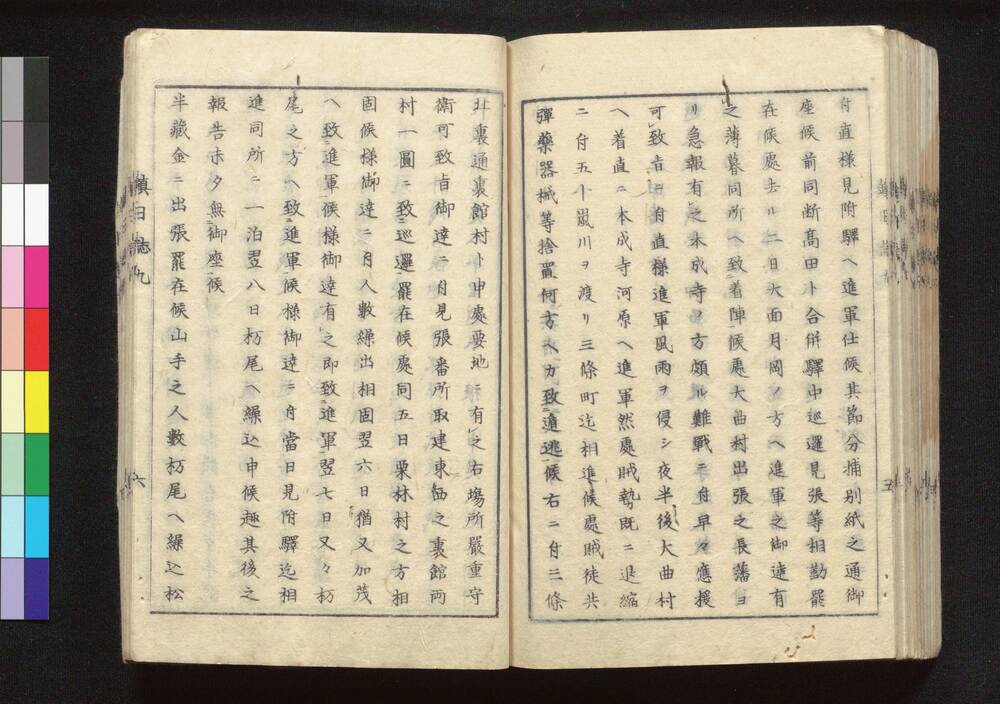 付直樣見附驛ヘ進軍仕候其節分捕別紙之通御
座候前同断髙田ト合併驛中巡邏見張等相勤罷
在候處去ル二日大面月岡ノ方ヘ進軍之御達有
之薄暮同所ヘ致着陣候處大曲村出張之長藩ヨ
リ急報有之本成寺ノ方頗ル難戰ニ付早々應援
可致旨ニ付直樣進軍風雨ヲ侵シ夜半後大曲村
ヘ着直ニ本成寺河原ヘ進軍然處賊勢既ニ退縮
ニ付五十嵐川ヲ渡リ三條町迄相進候處賊徒共
彈藥器械等捨置何方ヘカ致遁逃候右ニ付三條
北裏通裏館村ト申處要地ニ有之右塲所嚴重守
衛可致旨御達ニ付見張番所取建東西之裏館両
村一圓ニ致巡邏罷在候處同五日栗林村之方相
固候樣御達ニ付人數繰出相固翌六日猶又加茂
ヘ致進軍候樣御達有之即致進軍翌七日又々栃
尾之方ヘ致進軍候樣御達ニ付當日見附驛迄相
進同所ニ一泊翌八日栃尾ヘ繰込申候趣其後之
報告未タ無御座候
半藏金ニ出張罷在候山手之人數栃尾ヘ繰込松
鎮日誌九
六
五